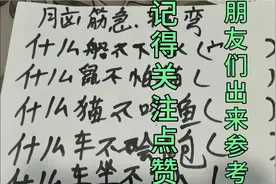 脑筋急转弯
什么船不下水(
什么鼠不怕猫(
什么猫不吃鱼(
什么车不
什么车坐不
记得关注点赞
朋友们出来参考